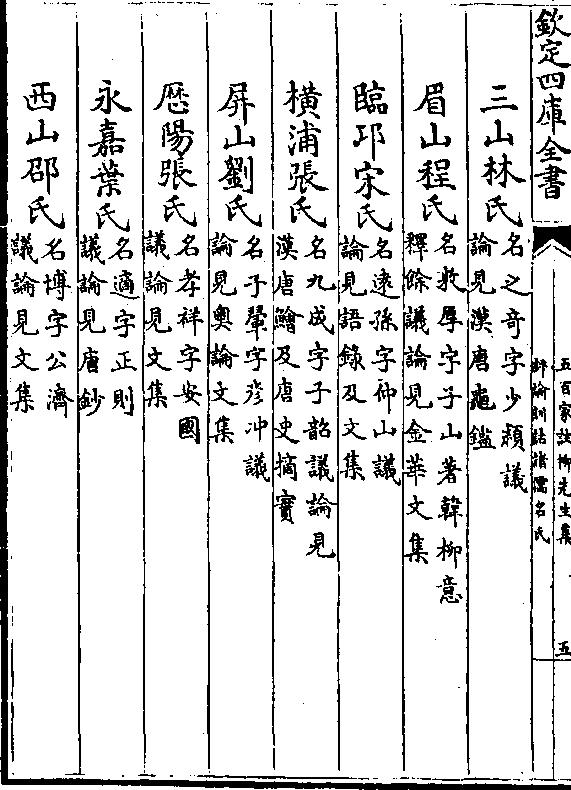 欽定四庫全書
五百家註柳先生集
評論訓詁諸儒名氏
五
三山林氏
名之奇字少頴議
論見漢唐龜鑑
眉山程氏
名敦厚字子山著韓柳意
釋餘議論見金華文集
臨邛宋氏
名遠孫字仲山議
論見語錄及文集
橫浦張氏
名九成字子韶議論見
漢唐鱠及唐史摘實
屏山劉氏
名子翬字彥冲議
論見奧論文集
歴陽張氏
名孝祥字安國
議論見文集
永嘉葉氏
名適字正則
議論見唐鈔
西山邵氏
名博字公濟
議論見文集